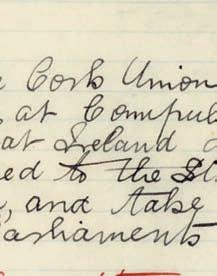 Cork Union
, at Compul
at Ireland
ed to the
, and take
arliaments